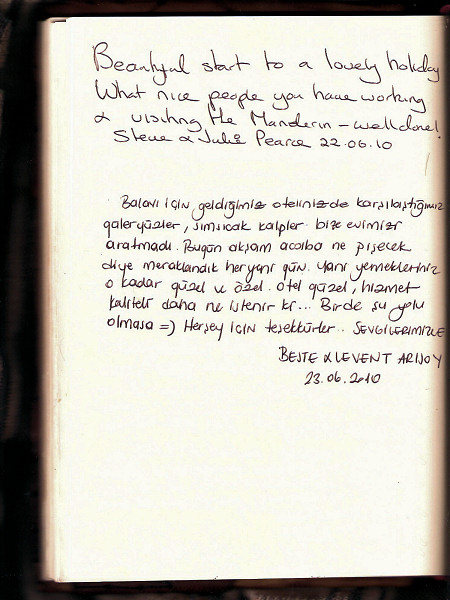 Beautiful start to a lovely holiday
What nice people you have working
& visiting the Manderin – well done!
Steve & Julie Pearce 22.06.10
Balayı için geldiğimiz otelinizde karşılaştığımız
güleryüzler, sımsıcak kalpler bize evimizi
aratmadı. Bugün akşam acaba ne pişecek
diye meraklandık her yeni gün. Yani yemekleriniz
o kadar güzel ve özel. Otel güzel, hizmet
kaliteli daha ne istenir ki... Birde şu yolu
olmasa =) Herşey için teşekkürler.. SEVGİLERİMİZLE
BESTE & LEVENT ARISOY
23.06.2010